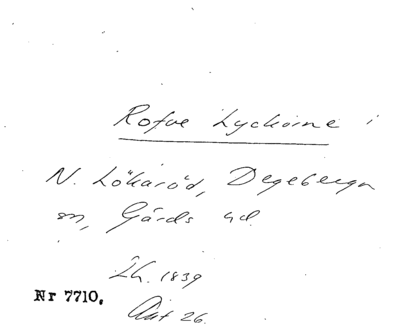 Rofve Lyckorne i
N. Lökaröd, Degeberga
sn, Gärds hd.
Lh. 1839
Nr 7710.
Akt 26.